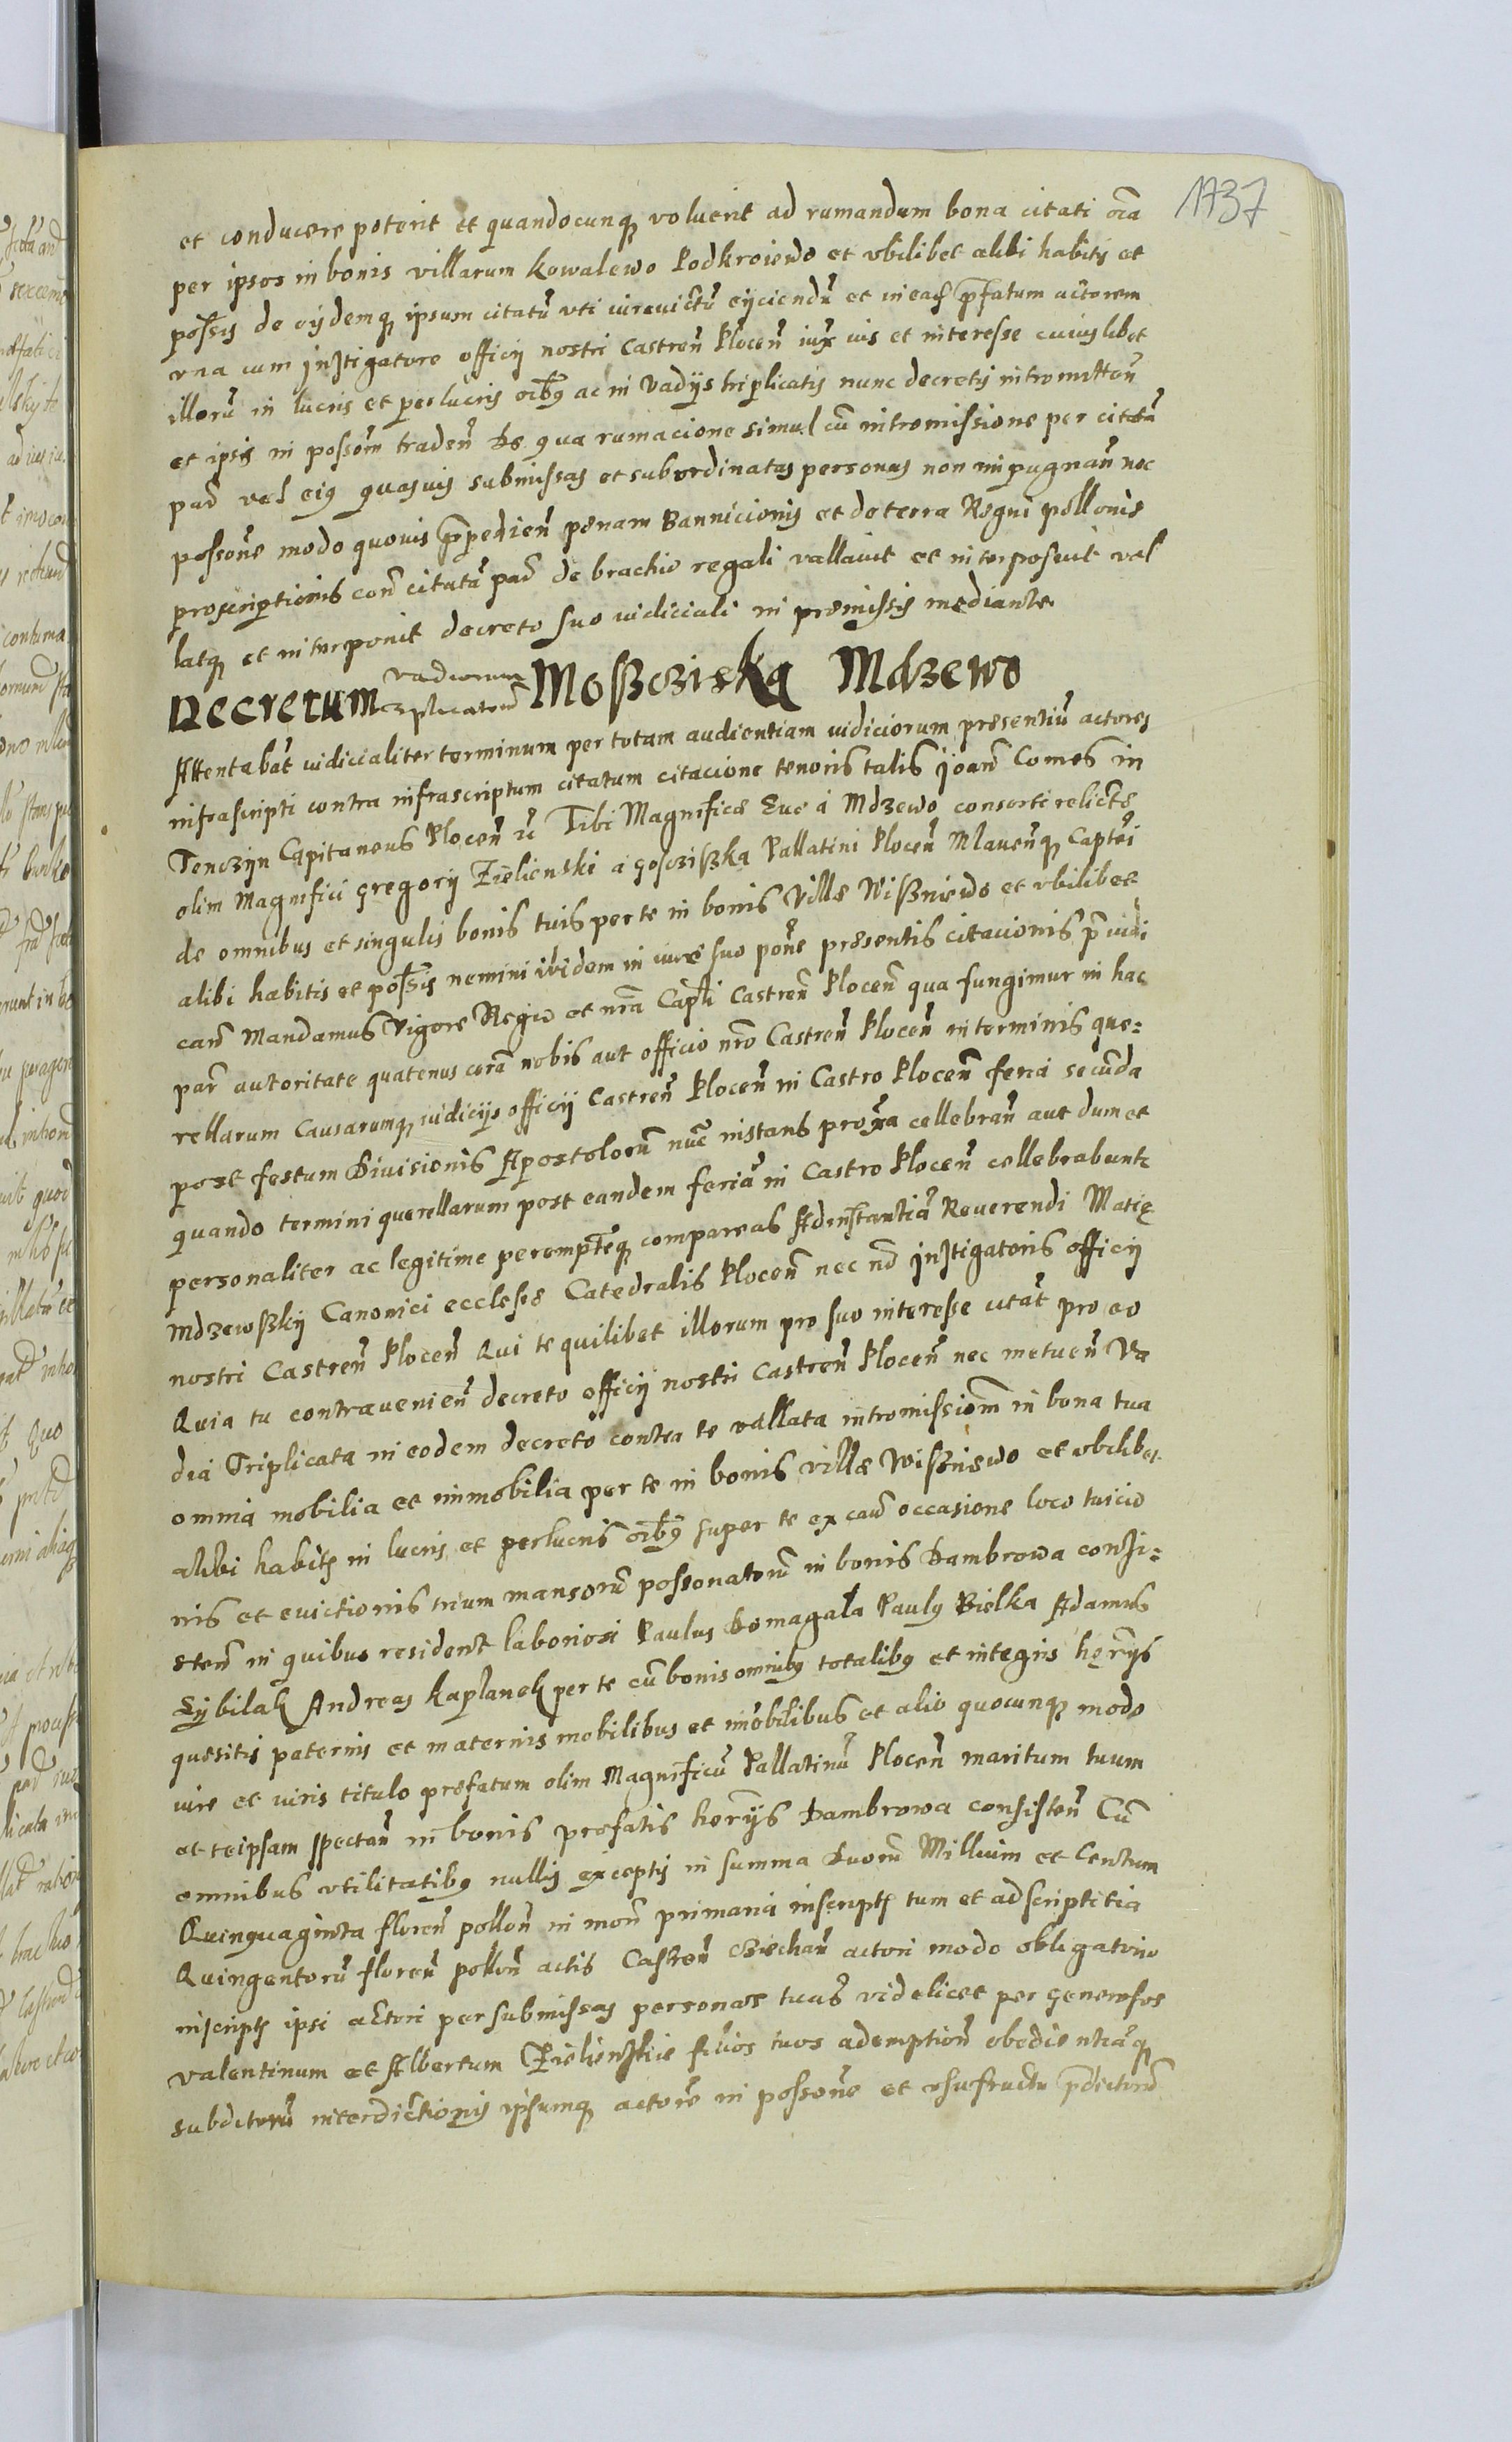 1737
et conducere poterit et quandocunq voluerit ad rumandum bona citati oĩa
per ipsos in bonis villarum Kowalewo Podkroiewo et vbilibet alibi habitis et
possis de eijsdemq ipsum citatũ vti iureuictũ eijciendũ et in eas p̃fatum actorem
vna cum Instigatore officij nostri Castreñ Ploceñ iux ius et interesse cuiuslibet
illorũ in lucris et perlucris oĩbus ac in Vadijs triplicatis nunc decretis intromitteñ
et ipsis in possom̃ tradeñ De qua rumacione simul cũ intromissione per citatã
par̃ vel eius quasuis submissas et subordinatas personas non impugnañ nec
possone modo quouis p̃pedieñ penam Bannicionis et de terra Regni pollonie
proscriptionis coñ citatã par̃ de brachio regali vallauit et interposuit val
latq et interponit decreto suo iudiciali in premissis mediante
Decretum vadiorum triplicatorũ Moszcziska Mdzewo
Attentabat iudicialiter terminum per totam audientiam iudiciorum presentiũ actores
infrascripti contra infrascriptum citatum citacione tenoris talis Joañ Comes in
Tenczyn Capitaneus Ploceñ ĩc Tibi Magnifice Eue a Mdzewo consorti relicte
olim Magnifici Gregorij Zielienski a Gosczisska Pallatini Ploceñ Mlaueñq Captei
de omnibus et singulis bonis tuis per te in bonis Ville Wissniewo et vbilibet
alibi habitis et possis nemini ibidem in iure suo pone presentis citacionis p̃iudi
cañ Mandamus Vigore Regia et nr̃a Capt̃li Castreñ Ploceñ qua fungimur in hac
par̃ autoritate quatenus corã nobis aut officio nr̃o Castreñ Ploceñ in terminis que=
rellarum Causarumq iudicijs officij Castreñ Ploceñ in Castro Ploceñ feria secũda
post festum Diuisionis Apostolorũ nũc instans proxa cellebrañ aut dum et
quando termini querellarum post eandem feriã in Castro Ploceñ cellebrabunt
personaliter ac legitime peremptẽq compareas Ad instantiã Reuerendi Matię
Mdzewskij Canonici ecclesie Catedralis Ploceñ nec nõ Instigatoris officij
nostri Castreñ Ploceñ Qui te quilibet illorum pro suo interesse citat̃ pro eo
Quia tu contraueniẽñ decreto officij nostri Castreñ Ploceñ nec metueñ Va
dia Triplicata in eodem decreto contra te vallata intromissiom̃ in bona tua
omnia mobilia et immobilia per te in bonis ville Wissniewo et vbilibet
alibi habitis in lucris et perlucris oĩbus super te ex cauã occasione loco tuicio
nis et euictionis trium mansorũ possonatorũ in bonis Dambrowa consi=
steñ in quibus resident laboriosi Paulus Domagala Paulus Bielka Adamus
Sijbilak Andreas Kaplanek per te cũ bonis omnibus totalibus et integris herijs
quesitis paternis et maternis mobilibus et im̃obilibus et alio quocunq modo
iure et iuris titulo prefatum olim Magnificũ Pallatinũ Ploceñ maritum tuum
et teipsam spectañ in bonis prefatis herijs Dambrowa consisteñ Cũ
omnibus vtilitatibus nullis exceptis in summa Duorũ Millium et Centum
Quinquaginta floreñ polloñ in moñ primaria inscriptis tum et adscriptitia
Quingentorũ floreñ polloñ actis Castreñ Ciechañ actori modo obligatorio
inscriptis ipsi actori per submissas personas tuas videlicet per Generosos
Valentinum et Albertum Zielienskie filios tuos ademptioñ obedientiãq
subditorũ interdictionis ipsumq actorẽ in possone et vsufructu p̃dictorũ